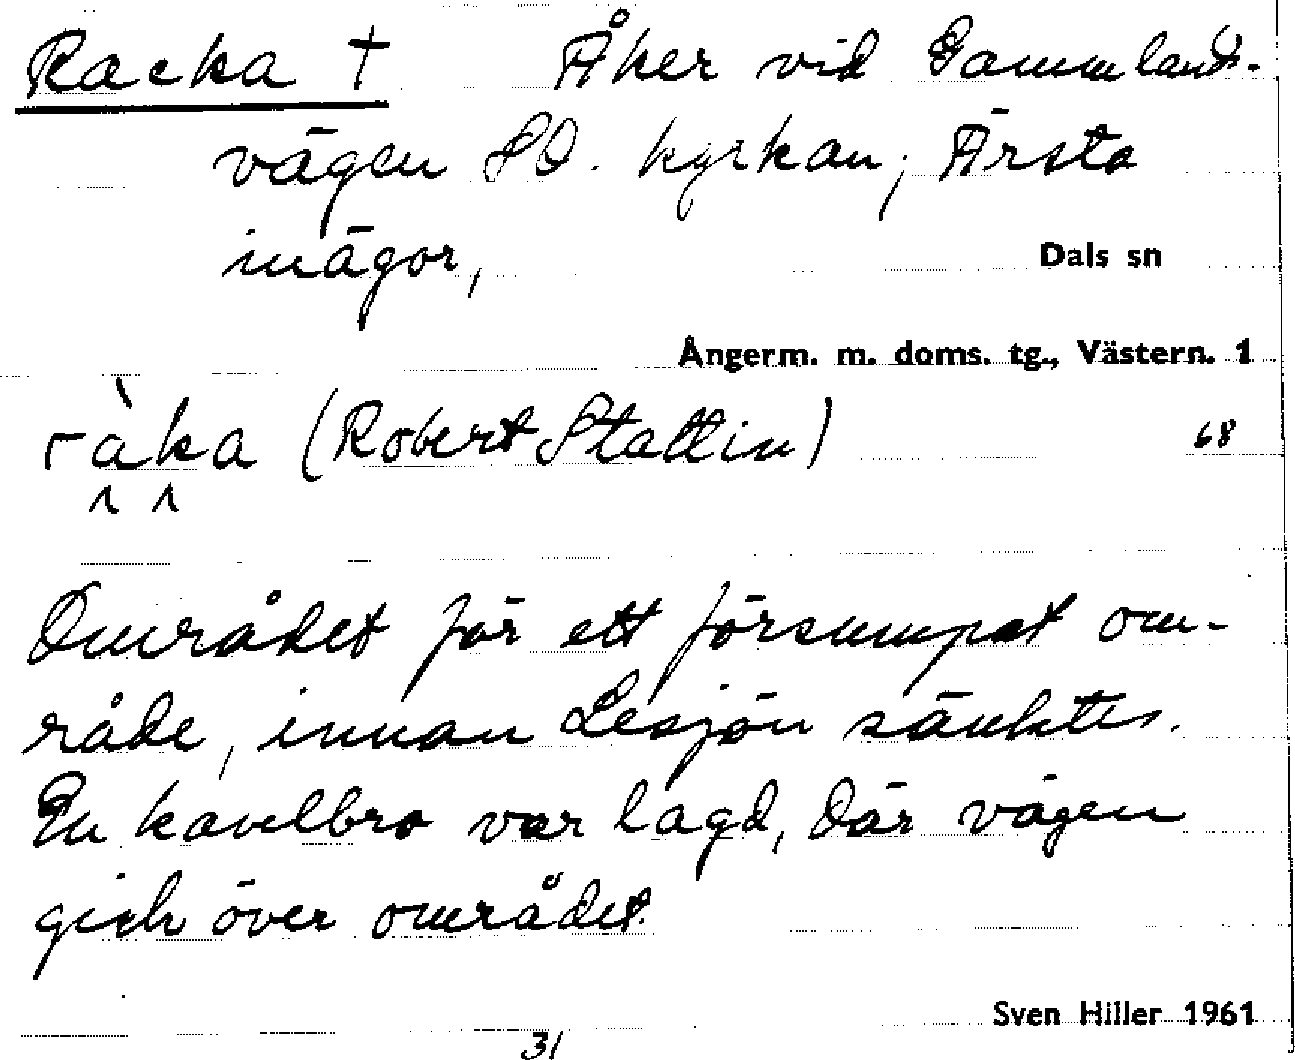 Racka † Åker vid Gammland-
vägen SO. kyrkan; Ärsta
inägor,
Dals sn
Ångerm. m. doms. tg., Västern. 1
ràka (Robert Stattin) 68
Området för ett försumpat om-
råde, innan Lesjön sänktes.
En kavelbro var lagd, där vägen
gick över området.
Sven Hiller 1961
31